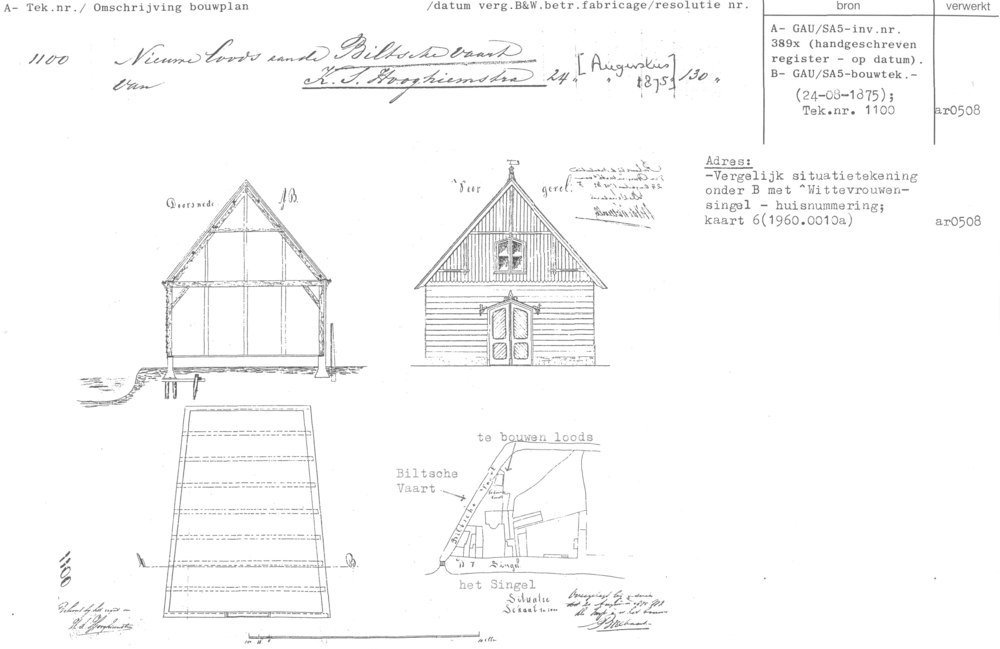 A- Tek.nr./ Omschrijving bouwplan /datum verg.B&W.betr.fabricage/resolutie nr. bron verwerkt
A- GAU/SA5-inv.nr.
389x (handgeschreven
register - op datum).
B- GAU/SA5-bouwtek.-
(24-08-1875);
Tek.nr. 1100 ar0508
1100 Nieuwe loods aan de Biltsche Vaart
van K. S. Hooghiemstra 24 „ [Augustus „ 1875] 130 „
Adres:
-Vergelijk situatietekening
onder B met ^Wittevrouwen-
singel - huisnummering;
kaart 6(1960.0010a) ar0508
Doorsnede AB.
Voor gevel.
te bouwen loods
Biltsche
Vaart
Biltsche Vaart
Singel
het Singel
Situatie
Schaal
B.
1100